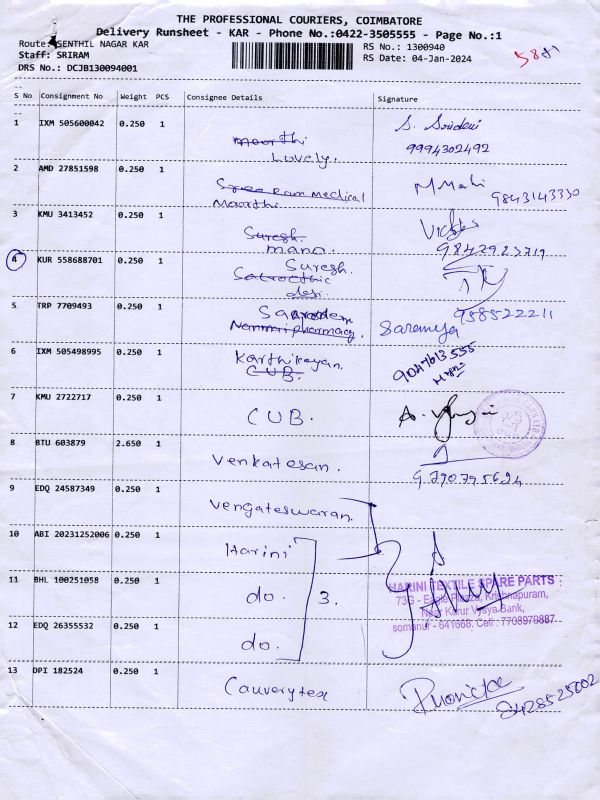 THE PROFESSIONAL COURIERS, COIMBATORE
Delivery Runsheet - KAR - Phone No.:0422-3505555 - Page No.:1
Route: SENTHIL NAGAR KAR
RS No.: 1300940
Staff: SRIRAM
RS Date: 04-Jan-2024
DRS No.: DCJB130094001
S No Consignment No Weight PCS Consignee Details Signature
1 IXM 505600042 0.250 1 moorthi S. Sridevi
Lovely. 9994302492
2 AMD 27851598 0.250 1 Sree Ram Medical M Mahi 9843143330
Moorthi
3 KMU 3413452 0.250 1 Suresh.
mano. 9842923719
4 KUR 558688701 0.250 1 Suresh.
5 TRP 7709493 0.250 1 958522211
Nammi pharmacy Saramya
6 IXM 505498995 0.250 1 Karthikeyan. 9047613555
CUB.
7 KMU 2722717 0.250 1 CUB.
8 BTU 603879 2.650 1 Venkatesan. 9790795624
9 EDQ 24587349 0.250 1 Vengateswaran.
10 ABI 20231252006 0.250 1 Harini
11 BHL 100251058 0.250 1 do. 3.
HARINI TEXTILE SPARE PARTS
73G - Eagle Plaza, Krishnapuram,
Near Karur Vysya Bank,
somanur - 641668. Cell : 7708979887
12 EDQ 26355532 0.250 1 do.
13 DPI 182524 0.250 1 Cauverytex